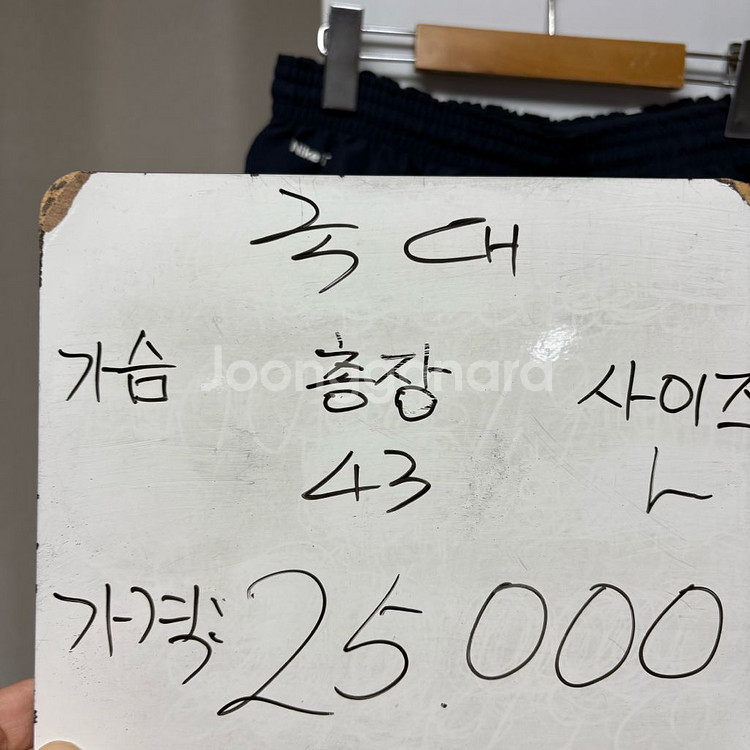 NIKE
국대
가슴 총장 사이즈
Joonggonara
43 L
가격: 25.000